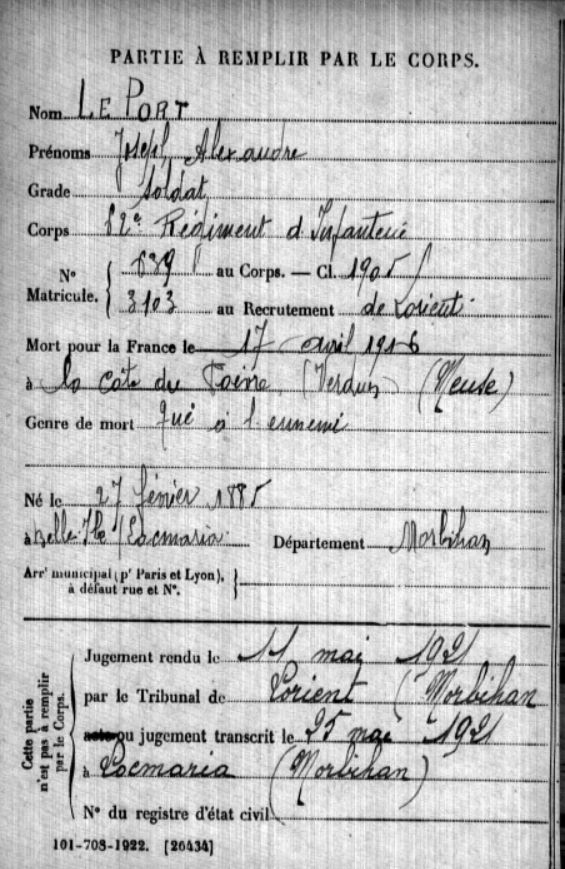 PARTIE À REMPLIR PAR LE CORPS.
Nom LE PORT
Prénoms Joseph Alexandre
Grade Soldat
Corps 62e Régiment d'Infanterie
N° Matricule. 639 au Corps. — Cl. 1905
3103 au Recrutement de Lorient
Mort pour la France le 17 avril 1916
à la côte du Poivre (Verdun) (Meuse)
Genre de mort Tué à l'ennemi
Né le 27 février 1885
à Belle-Ile / Locmaria Département Morbihan
Arrt municipal (pr Paris et Lyon),
à défaut rue et N°.
Cette partie n'est pas à remplir par le Corps.
Jugement rendu le 11 mai 1921
par le Tribunal de Lorient (Morbihan
acte ou jugement transcrit le 25 mai 1921
à Locmaria (Morbihan)
N° du registre d'état civil
101-708-1922. [26434]